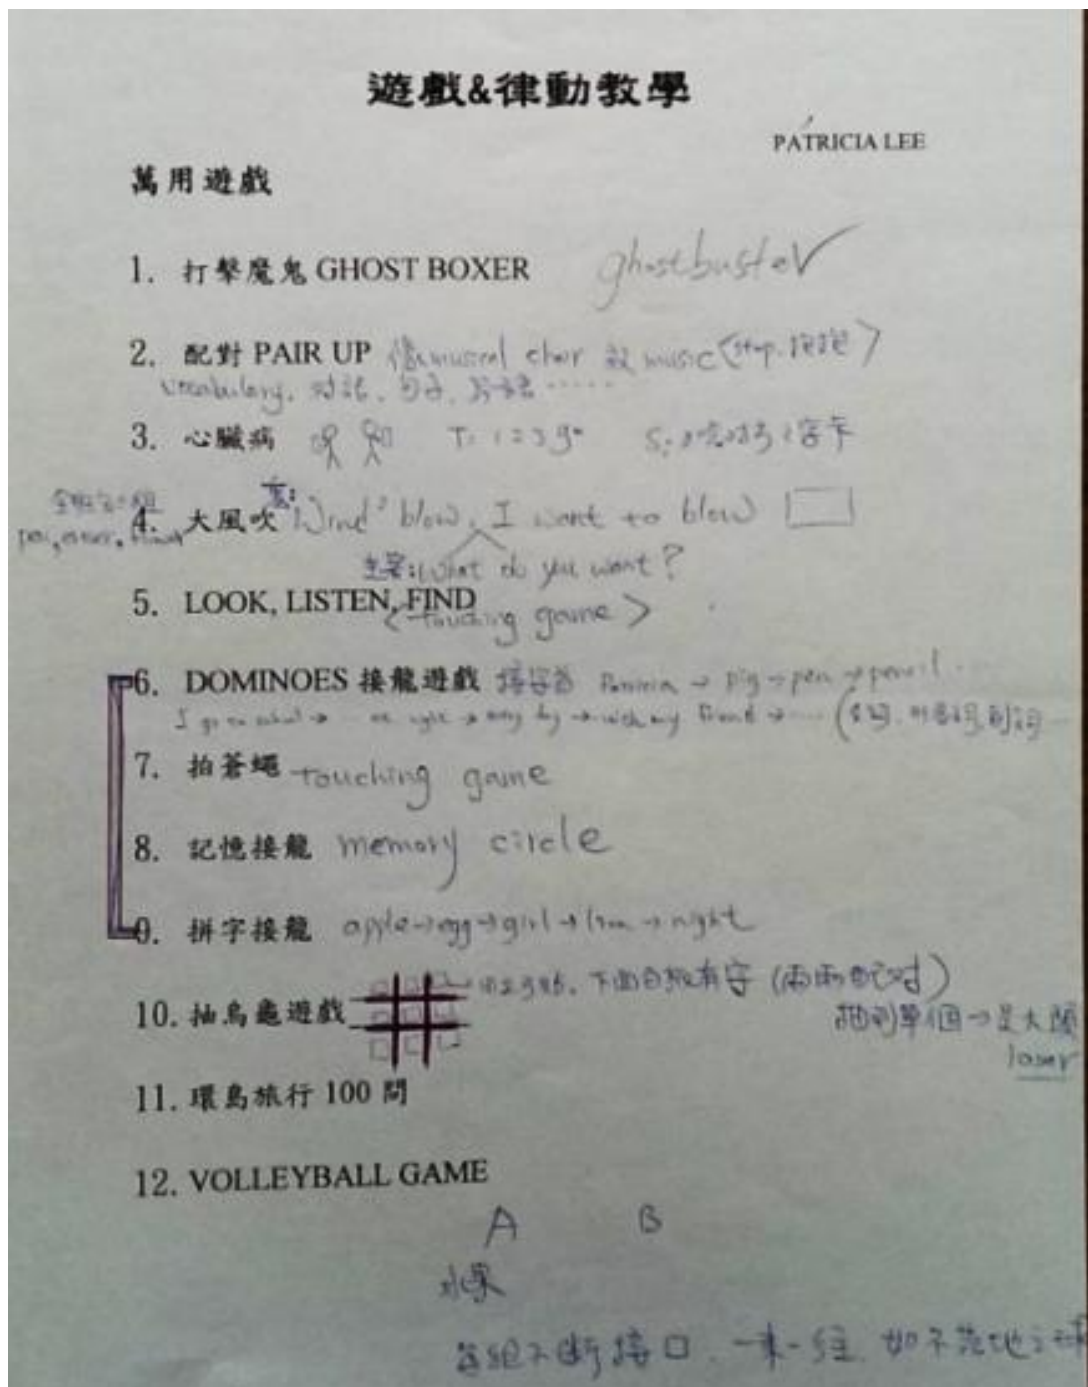 遊戲&律動教學
PATRICIA LEE
萬用遊戲
1. 打擊魔鬼 GHOST BOXER ghostbuster
2. 配對 PAIR UP 像 musical chair 放 music (stop, 抱抱)
vocabulary, 对話, 句子,
3. 心臟病 T: 1 2 3 go S: 字卡
4. 大風吹 Wind blow, I want to blow
主客: What do you want?
5. LOOK, LISTEN, FIND
<touching game>
6. DOMINOES 接龍遊戲 接字首 Patricia → pig → pen → pencil
I go to school → → every day → with my friend →
7. 拍蒼蠅 touching game
8. 記憶接龍 memory circle
9. 拼字接龍 apple → egg → girl → lion → night
10. 抽烏龜遊戲 下面白板有字 (兩兩配对)
抽到單個→是大頭
loser
11. 環島旅行 100 問
12. VOLLEYBALL GAME
A B
水果
各組不断接口, 一來一往, 如不落地之球